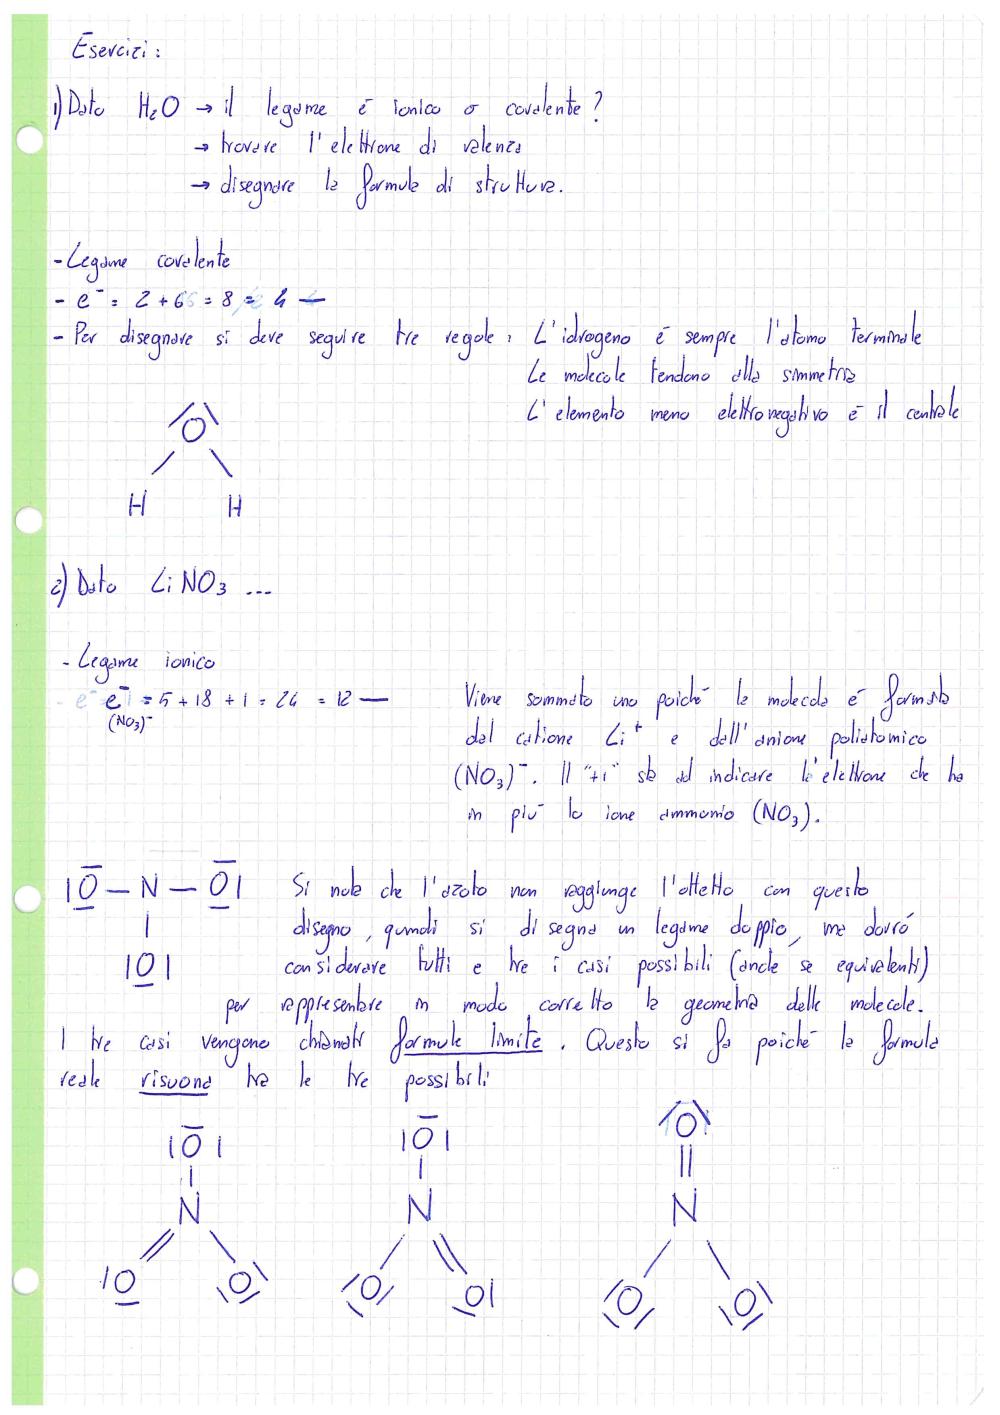 Esercizi:
1) Dato H2O → il legame è ionico o covalente?
→ trovare l'elettrone di valenza
→ disegnare la formula di struttura.
- Legame covalente
- e⁻ = 2 + 6 = 8 = 4 —
- Per disegnare si deve seguire tre regole: L'idrogeno è sempre l'atomo terminale
Le molecole tendono alla simmetria
L'elemento meno elettronegativo è il centrale
O
H H
2) Dato LiNO3 ...
- Legame ionico
- e⁻ = 5 + 18 + 1 = 24 = 12 —
(NO3)⁻
Viene sommato uno poichè la molecola è formata
dal catione Li⁺ e dall'anione poliatomico
(NO3)⁻. Il "+1" sta ad indicare l'elettrone che ha
in più lo ione ammonio (NO3).
|O — N — O|
|O|
Si nota che l'azoto non raggiunge l'ottetto con questo
disegno, quindi si disegna un legame doppio, ma dovrò
considerare tutti e tre i casi possibili (anche se equivalenti)
per rappresentare in modo corretto la geometria delle molecole.
I tre casi vengono chiamati formule limite. Questo si fa poichè la formula
reale risuona tra le tre possibili
|O| |O| O
N N N
|O O O O| O O